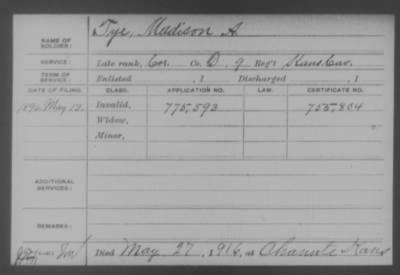 NAME OF SOLDIER: Tye, Madison A
SERVICE: Late rank, Co. D, 9 Reg't Kans Cav.
TERM OF SERVICE: Enlisted , 1 Discharged , 1
DATE OF FILING. CLASS. APPLICATION NO. LAW. CERTIFICATE NO.
May 12. Invalid, 775,593 755,804
Widow,
Minor,
ADDITIONAL SERVICES:
REMARKS:
Died May 27, 1916, at Chanute Kans